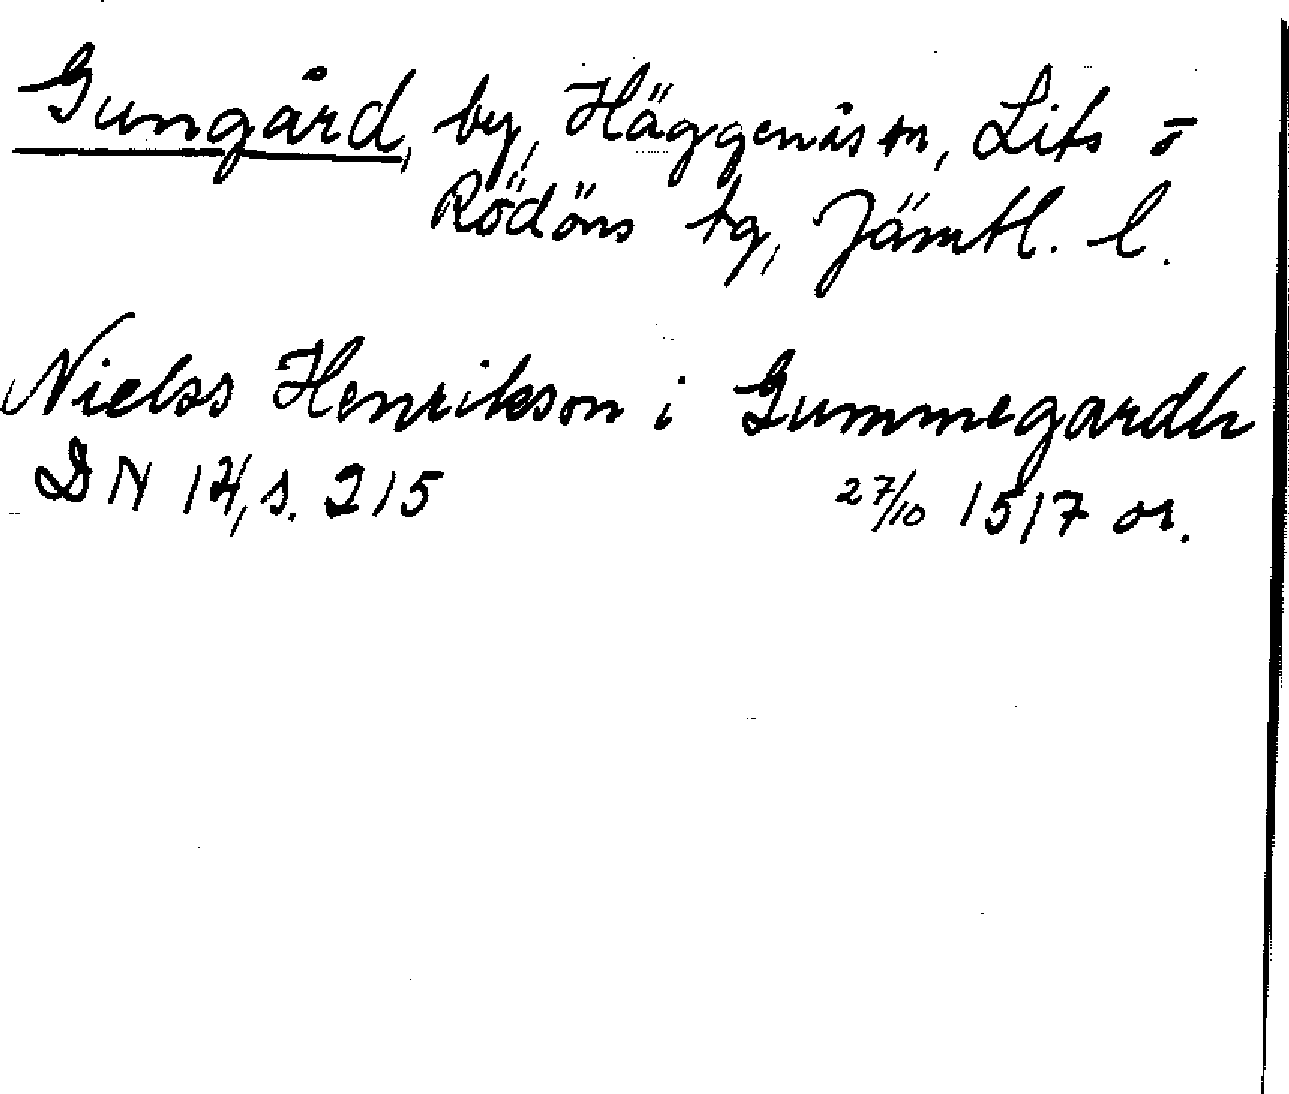 Gungård, by, Häggenås sn, Lits o
Rödöns tg, Jämtl. l.
Nielss Henrikson i Gummegardh
DN 14, s. 215 27/10 1517 or.